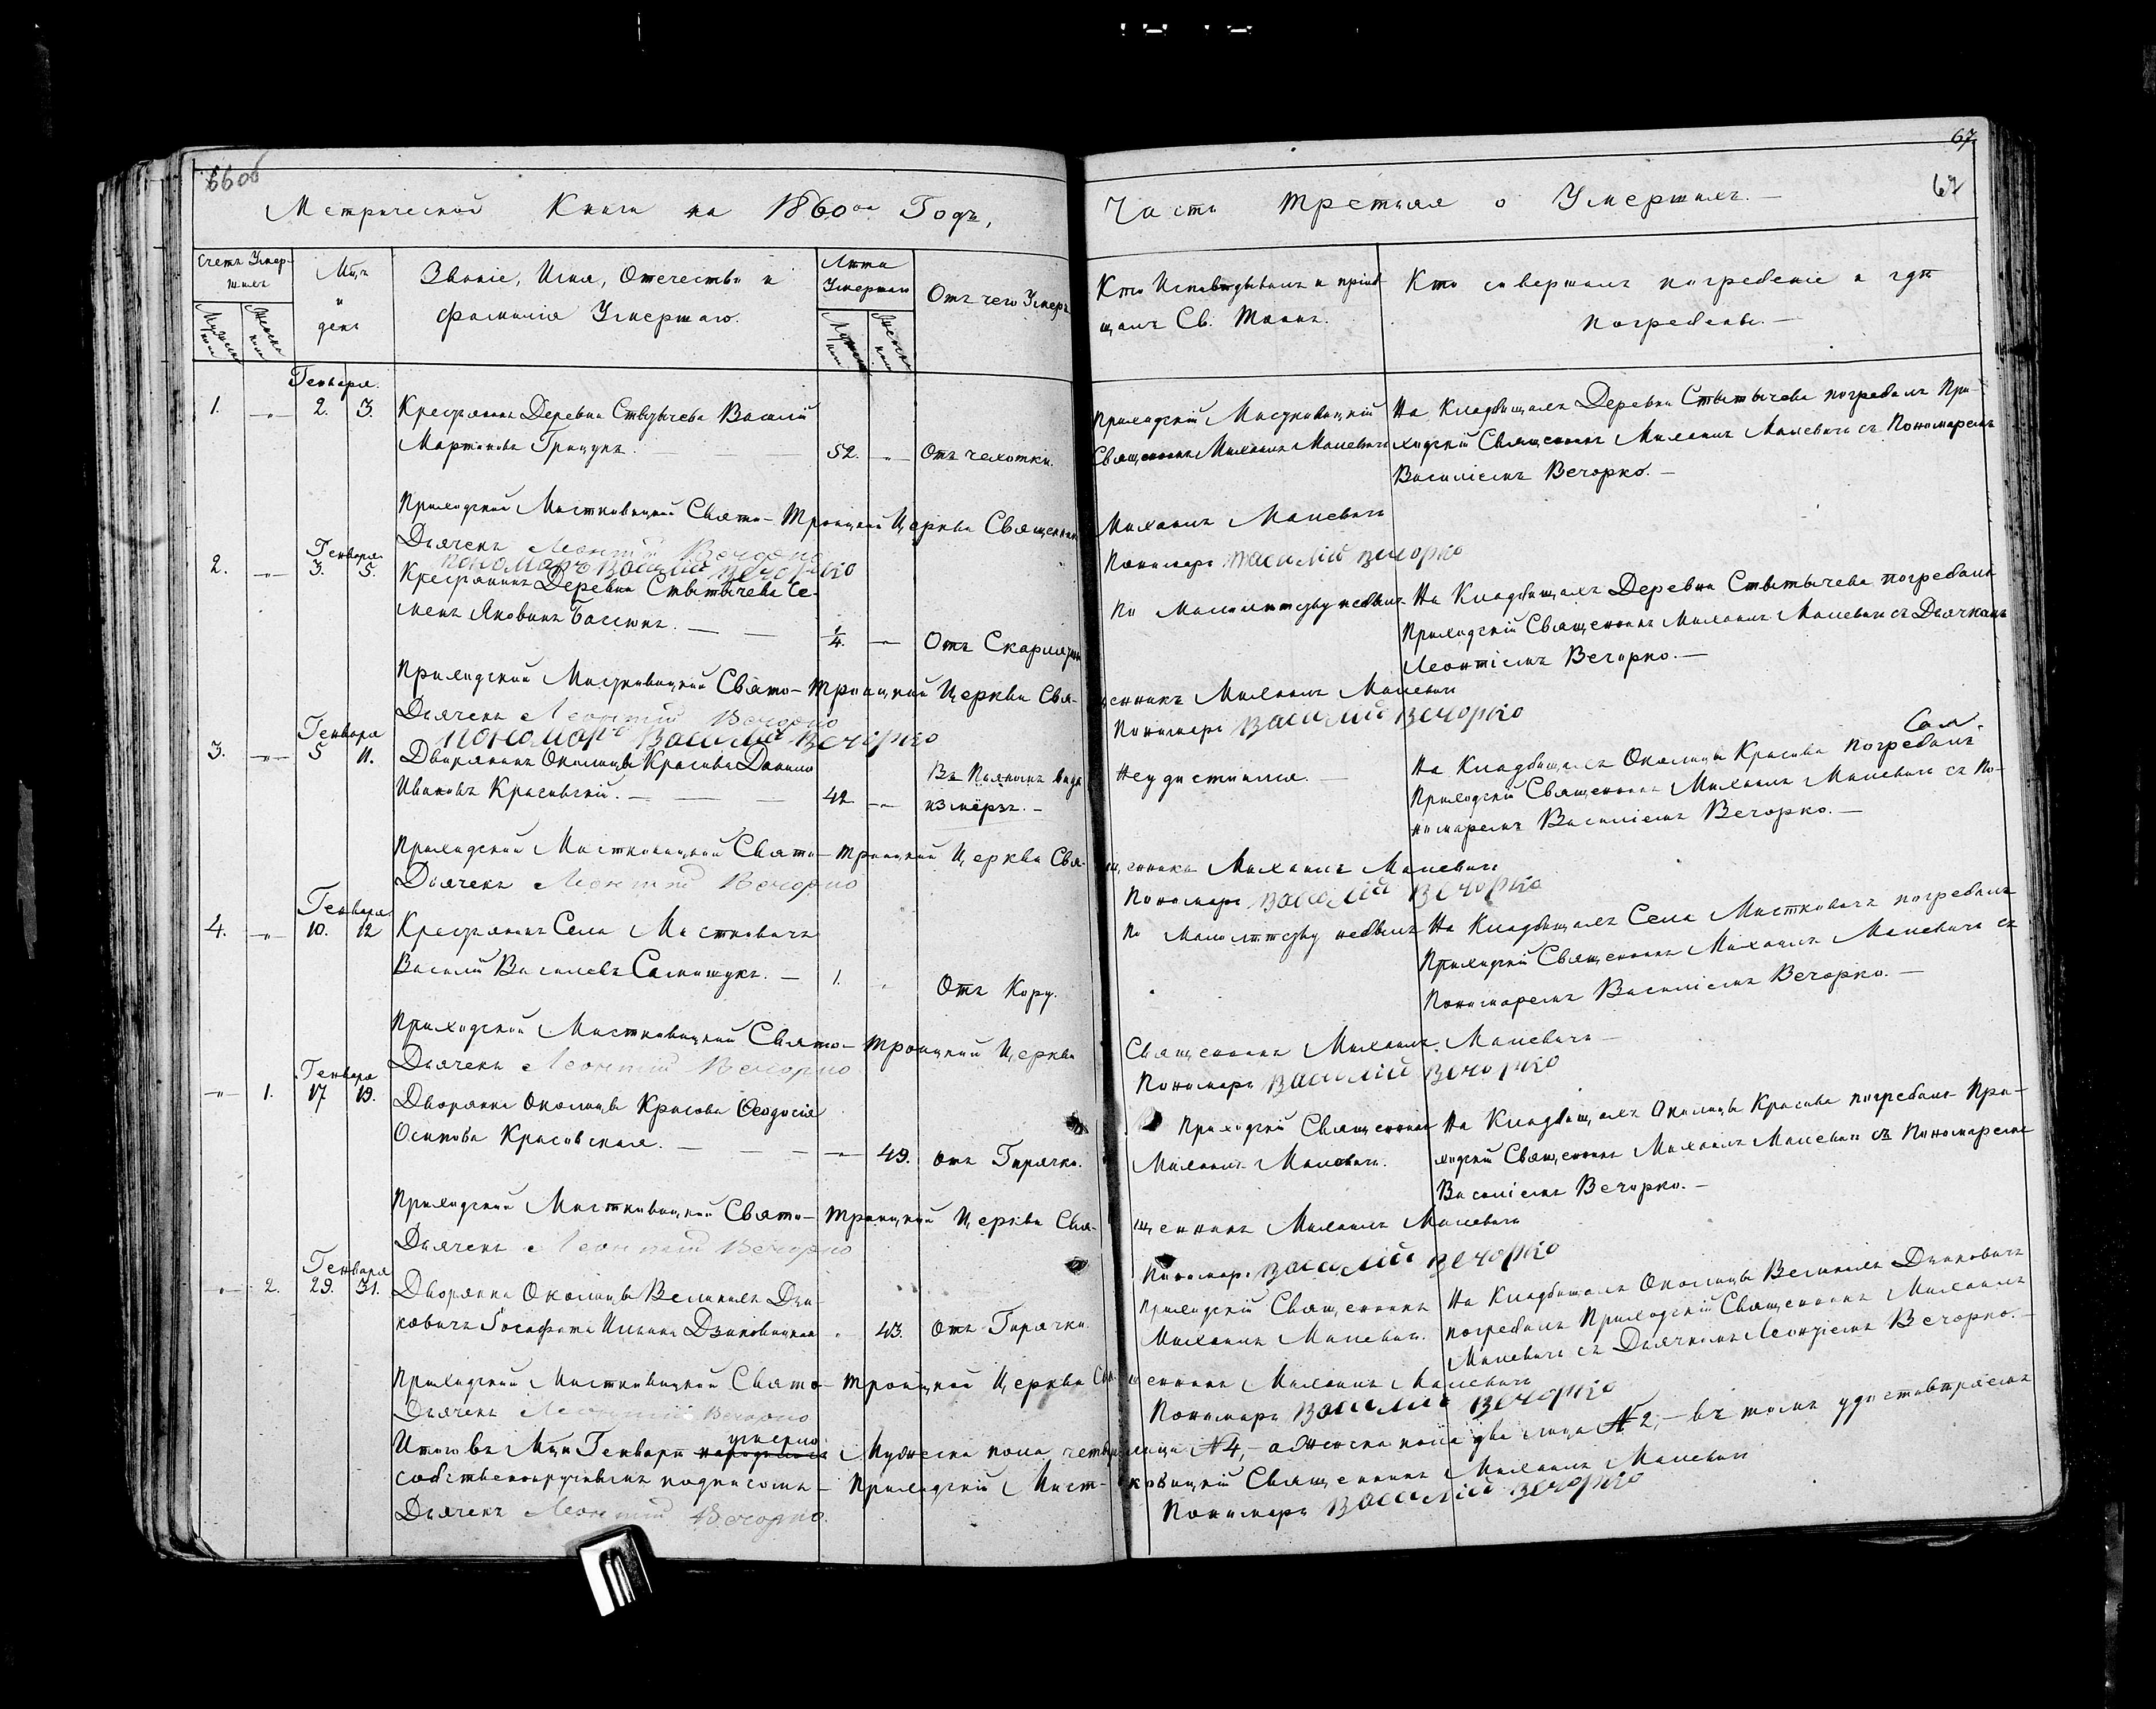 66об
67
67
Метрической Книги на 1860ой Годъ, Часть третия о Умершихъ.—
Счетъ Умер-
шихъ
Мужеска
пола
Женска
пола
Мцъ
и
день
Званіе, Имя, Отечество и
фамилія Умершаго.
Лета
Умершаго
Мужеска
пола
Женска
пола
Отъ чего Умеръ
Кто Исповѣдывалъ и пріоб
щалъ Св. Таинъ.
Кто совершалъ погребеніе и гдѣ
погребены.—
Генваря
1. —„— 2. 3. Крестьянинъ Деревни Стытычева Василій
Мартиновъ Грицукъ. 52. —„— Отъ чахотки.
Приходскій Мистковицкій
Священникъ Михаилъ Малевичъ
На Кладбищахъ Деревни Стытычева погребалъ При-
ходскій Священникъ Михаилъ Малевичъ съ Пономаремъ
Василіемъ Вечорко.—
Приходский Мистковицкой Свято-Троицкой Церкви Священникъ Михаилъ Малевичъ
Дьячекъ Леонтій Вечорко Пономарь Василій Вечорко
пономаръ Василій Вечорко
Генваря
2. —„— 3. 5. Крестьянинъ Деревни Стытычева Се-
менъ Яковинъ Басюкъ.— 1/4. —„— Отъ Скарлатины
По малолетству небылъ
На Кладбищахъ Деревни Стытычева погребалъ
Приходскій Священникъ Михаилъ Малевичъ съ Дьячкомъ
Леонтіемъ Вечорко.—
Приходский Мистковицкой Свято-Троицкой Церкви Священникъ Михаилъ Малевичъ
Дьячекъ Леонтій Вечорко Пономарь Василій Вечорко
пономаръ Василій Вечорко
Генваря
3. —„— 5 11. Дворянинъ Околицы Красова Данило
Ивановъ Красовский.— 42 —„— Въ Пьяномъ виде
измёрзъ.—
Неудостоился.—
На Кладбищахъ Околицы Красова погребалъ Сам.
Приходскій Священникъ Михаилъ Малевичъ съ По-
номаремъ Василіемъ Вечорко.—
Приходский Мистковицкой Свято-Троицкой Церкви Священникъ Михаилъ Малевичъ
Дьячекъ Леонтій Вечорко Пономарь Василій Вечорко
Генваря
4. —„— 10. 12 Крестьянинъ Села Мистковичъ
Василій Василевъ Самощукъ.— 1. „ Отъ Кору.
По малолетству небылъ
На Кладбищахъ Села Мистковичъ погребалъ
Приходскій Священникъ Михаилъ Малевичъ съ
Пономаремъ Василіемъ Вечорко.—
Приходский Мистковицкой Свято-Троицкой Церкви Священникъ Михаилъ Малевичъ—
Дьячекъ Леонтій Вечорко Пономарь Василій Вечорко
Генваря
—„— 1. 17 19. Дворянка Околицы Красова Феодосія
Осипова Красовская.— —„— 49. отъ Горячки.
Приходскій Священникъ
Михаилъ Малевичъ.
На Кладбищахъ Околицы Красова погребалъ При-
ходскій Священникъ Михаилъ Малевичъ съ Пономаремъ
Василіемъ Вечорко.—
Приходский Мистковицкой Свято-Троицкой Церкви Священникъ Михаилъ Малевичъ
Дьячекъ Леонтій Вечорко Пономарь Василій Вечорко
Генваря
—„— 2. 29. 31. Дворянка Околицы Великихъ Дзи-
ковичъ Іосафата Ильина Дзиковицкая „ 43. Отъ Горячки.
Приходскій Священникъ
Михаилъ Малевичъ.
На Кладбищахъ Околицы Великихъ Дзиковичъ
погребалъ Приходскій Священникъ Михаилъ
Малевичъ съ Дьячкомъ Леонтіемъ Вечорко.—
Приходский Мистковицкой Свято-Троицкой Церкви Священникъ Михаилъ Малевичъ
Дьячекъ Леонтій Вечорко Пономарь Василій Вечорко
умерло
Итого въ Мцѣ Генварѣ народилось Мужеска пола четыре лица №4,— а Женска пола два лица №2,— въ томъ удостовѣряемъ
собственноручнымъ подписомъ— Приходскій Мистковицкій Священникъ Михаилъ Малевичъ
Дьячекъ Леонтій Вечорко. Пономарь Василій Вечорко